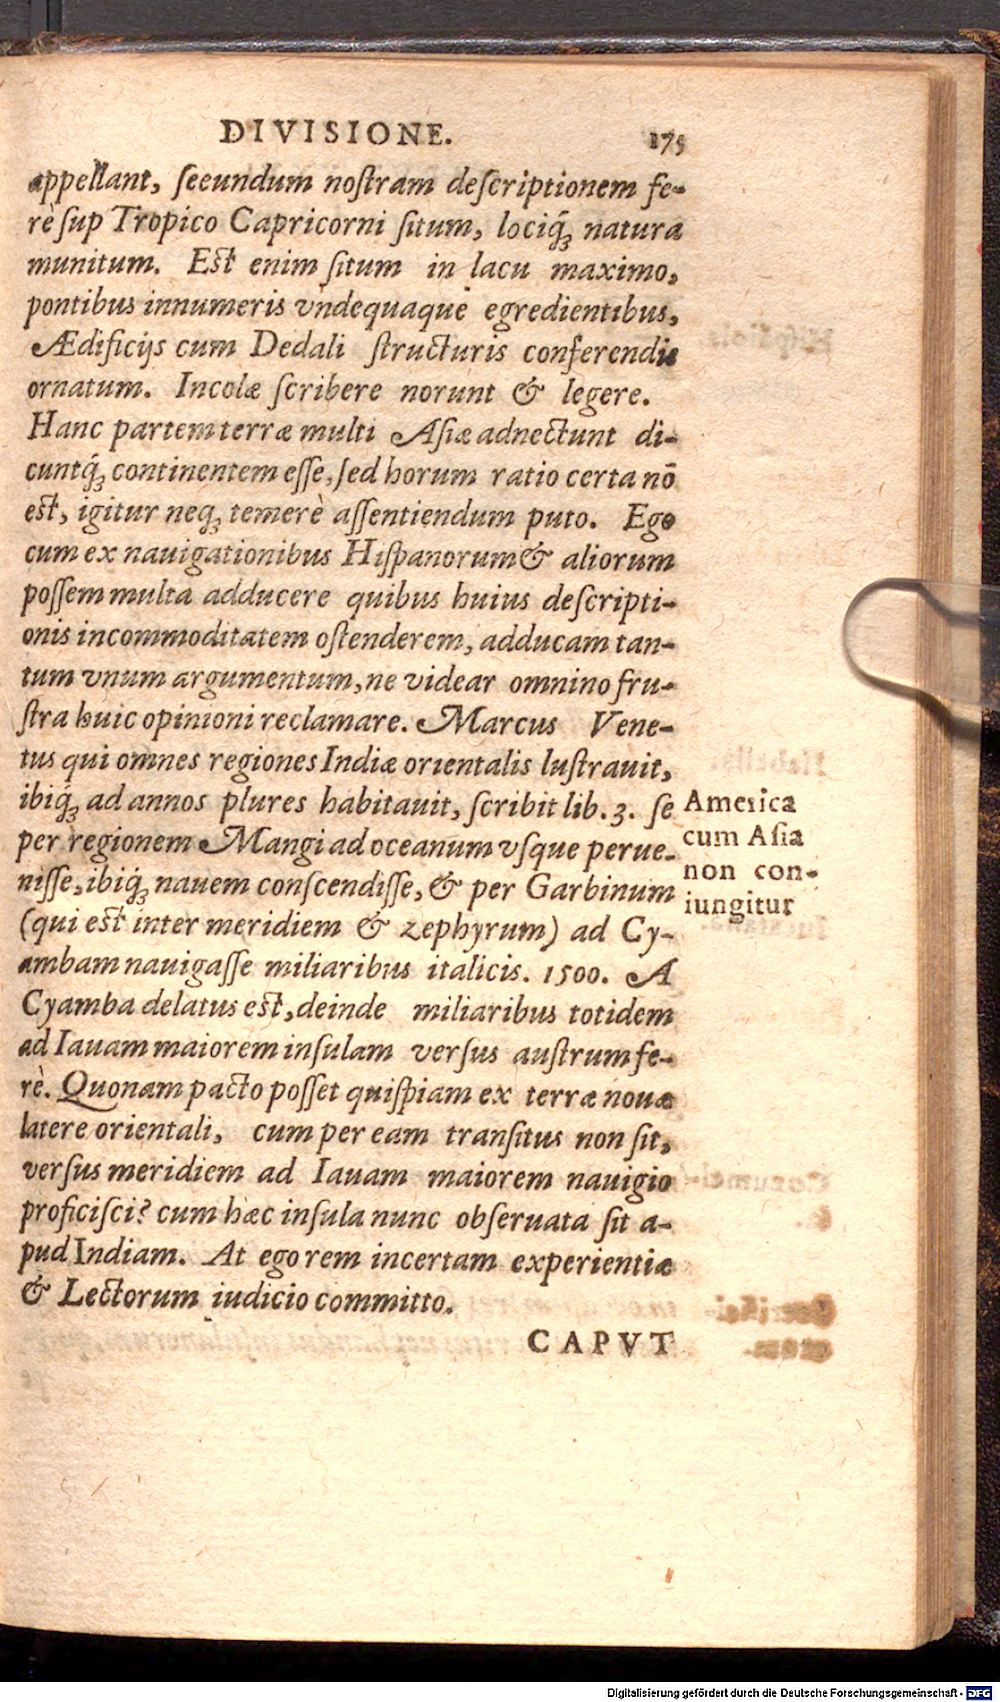 DIVISIONE. 175
appellant, seeundum nostram descriptionem fe-
rè sup Tropico Capricorni situm, lociq́ꝫ natura
munitum. Est enim situm in lacu maximo,
pontibus innumeris vndequaque egredientibus,
Ædificijs cum Dedali structuris conferendis
ornatum. Incolæ scribere norunt & legere.
Hanc partem terræ multi Asiæ adnectunt di-
cuntq́ꝫ continentem esse, sed horum ratio certa nō
est, igitur neqꝫ temerè assentiendum puto. Ego
cum ex nauigationibus Hispanorum & aliorum
possem multa adducere quibus huius descripti-
onis incommoditatem ostenderem, adducam tan-
tum vnum argumentum, ne videar omnino fru-
stra huic opinioni reclamare. Marcus Vene-
tus qui omnes regiones Indiæ orientalis lustrauit,
ibiq́ꝫ ad annos plures habitauit, scribit lib. 3. se
per regionem Mangi ad oceanum vsque perue-
nisse, ibiq́ꝫ nauem conscendisse, & per Garbinum
(qui est inter meridiem & zephyrum) ad Cy-
ambam nauigasse miliaribus italicis. 1500. A
Cyamba delatus est, deinde miliaribus totidem
ad Iauam maiorem insulam versus austrum fe-
rè. Quonam pacto posset quispiam ex terræ nouæ
latere orientali, cum per eam transitus non sit,
versus meridiem ad Iauam maiorem nauigio
proficisci? cum hæc insula nunc obseruata sit a-
pud Indiam. At ego rem incertam experientiæ
& Lectorum iudicio committo.
CAPVT
America
cum Asia
non con-
iungitur
Digitalisierung gefördert durch die Deutsche Forschungsgemeinschaft - DFG